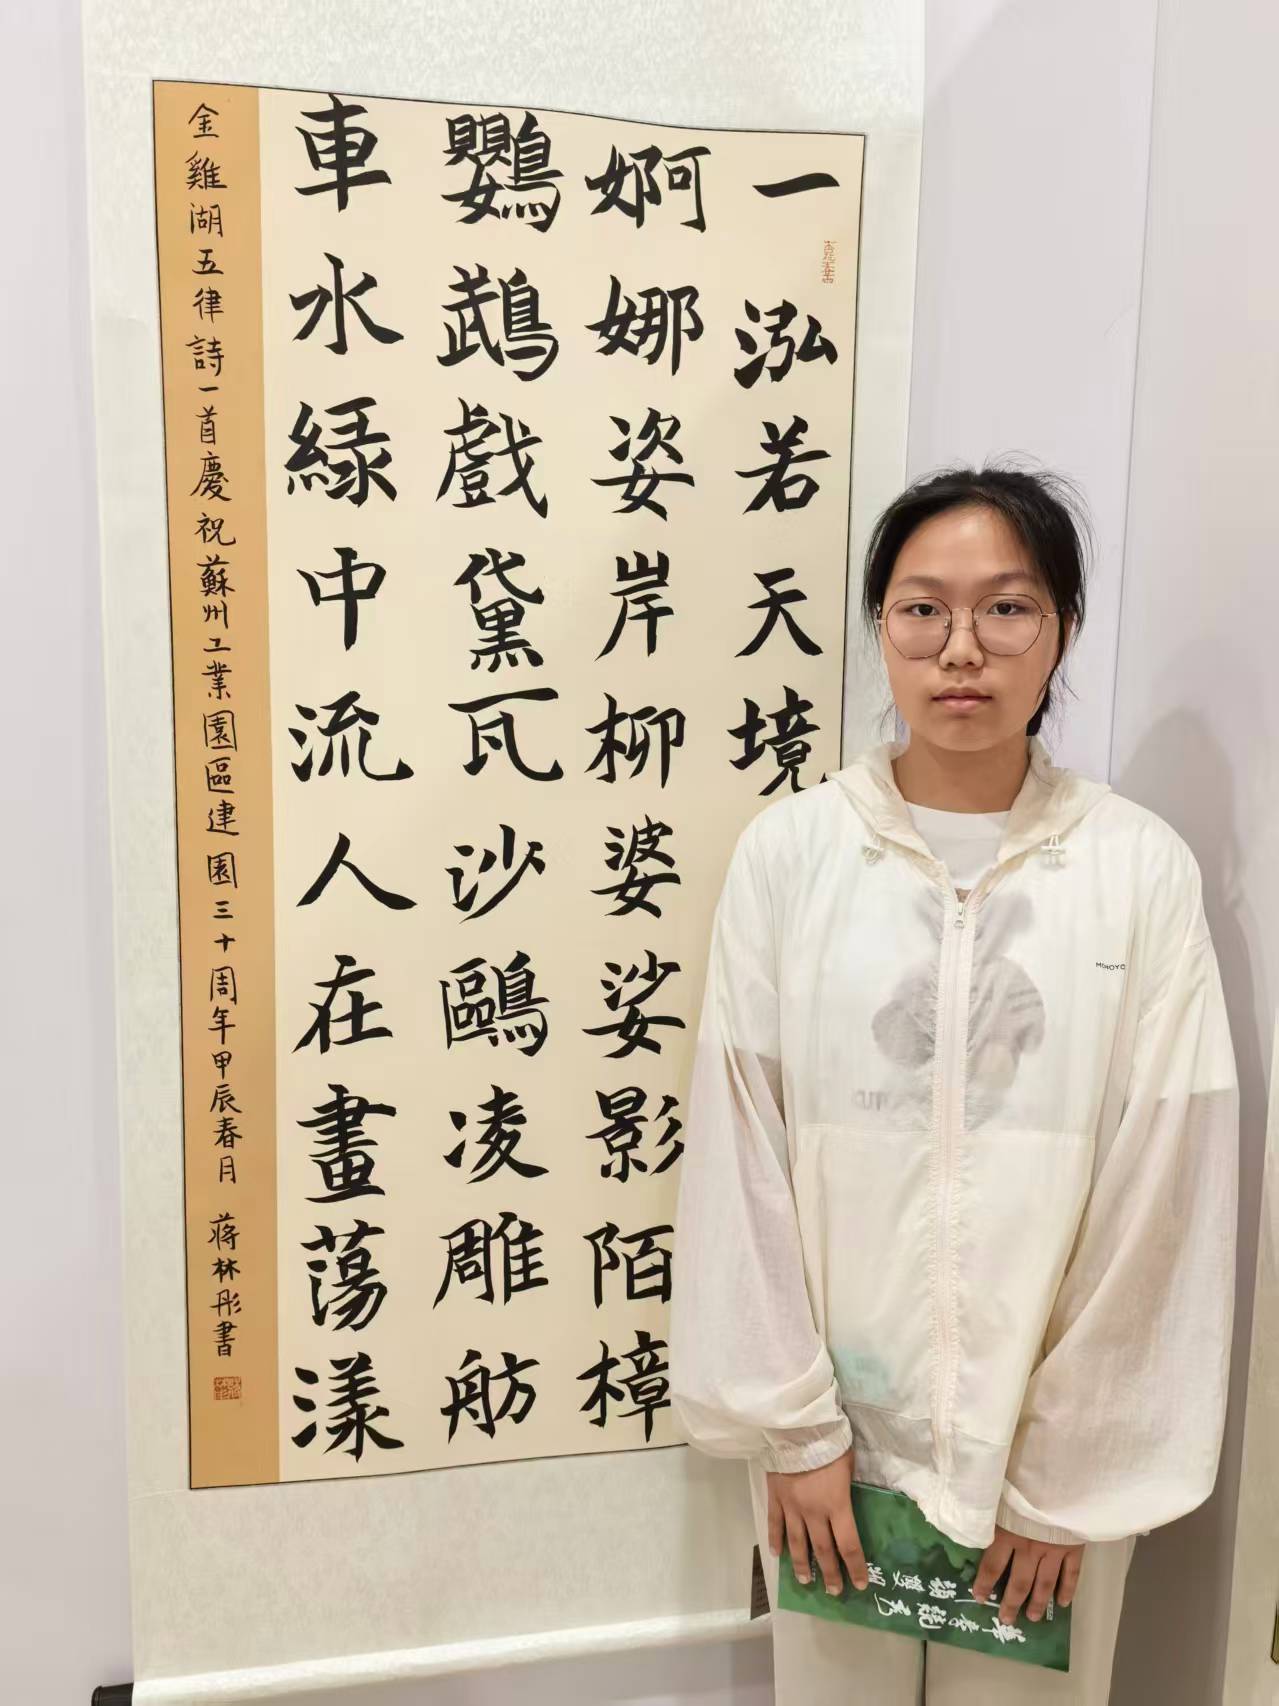 一泓若天境
婀娜姿岸柳婆娑影陌樟
鸚鵡戲黛瓦沙鷗凌雕舫
車水緑中流人在畫蕩漾
金雞湖五律詩一首慶祝蘇州工業園區建園三十周年甲辰春月 蔣林彤書